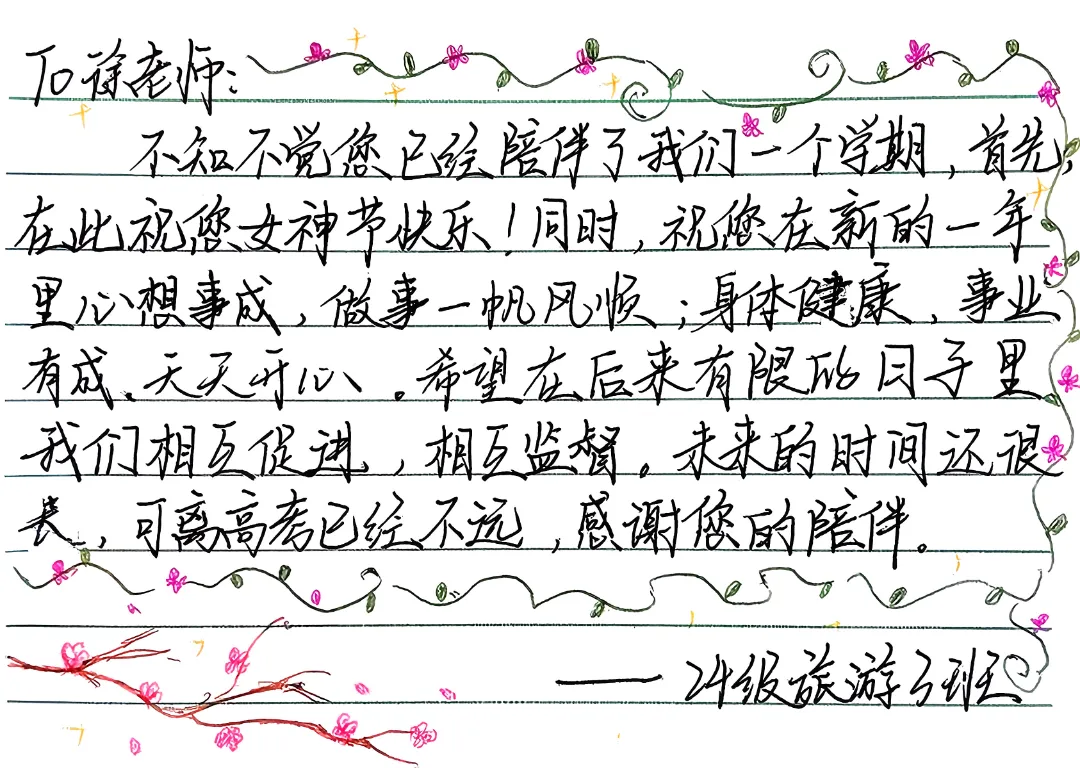 To 徐老师：
不知不觉您已经陪伴了我们一个学期，首先，
在此祝您女神节快乐！同时，祝您在新的一年
里心想事成，做事一帆风顺；身体健康，事业
有成、天天开心。希望在后来有限的日子里
我们相互促进，相互监督。未来的时间还很
长，可离高考已经不远，感谢您的陪伴。
—— 24级旅游3班